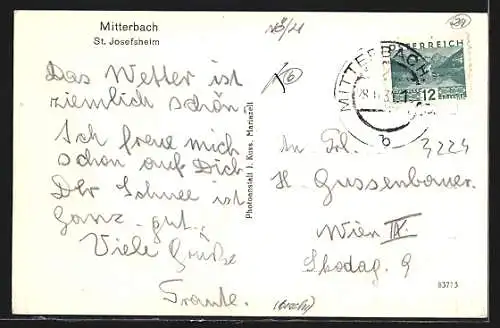 Mitterbach
St. Josefsheim
Das Wetter ist
ziemlich schön.
Ich freue mich
schon auf Dich.
Der Schnee ist
ganz gut.
Viele Grüße
Traute.
Photoanstalt J. Kuss, Mariazell
MITTERBACH
b
ÖSTERREICH
12
An Frl. 3224
H. Gussenbauer.
Wien IX.
9
83773